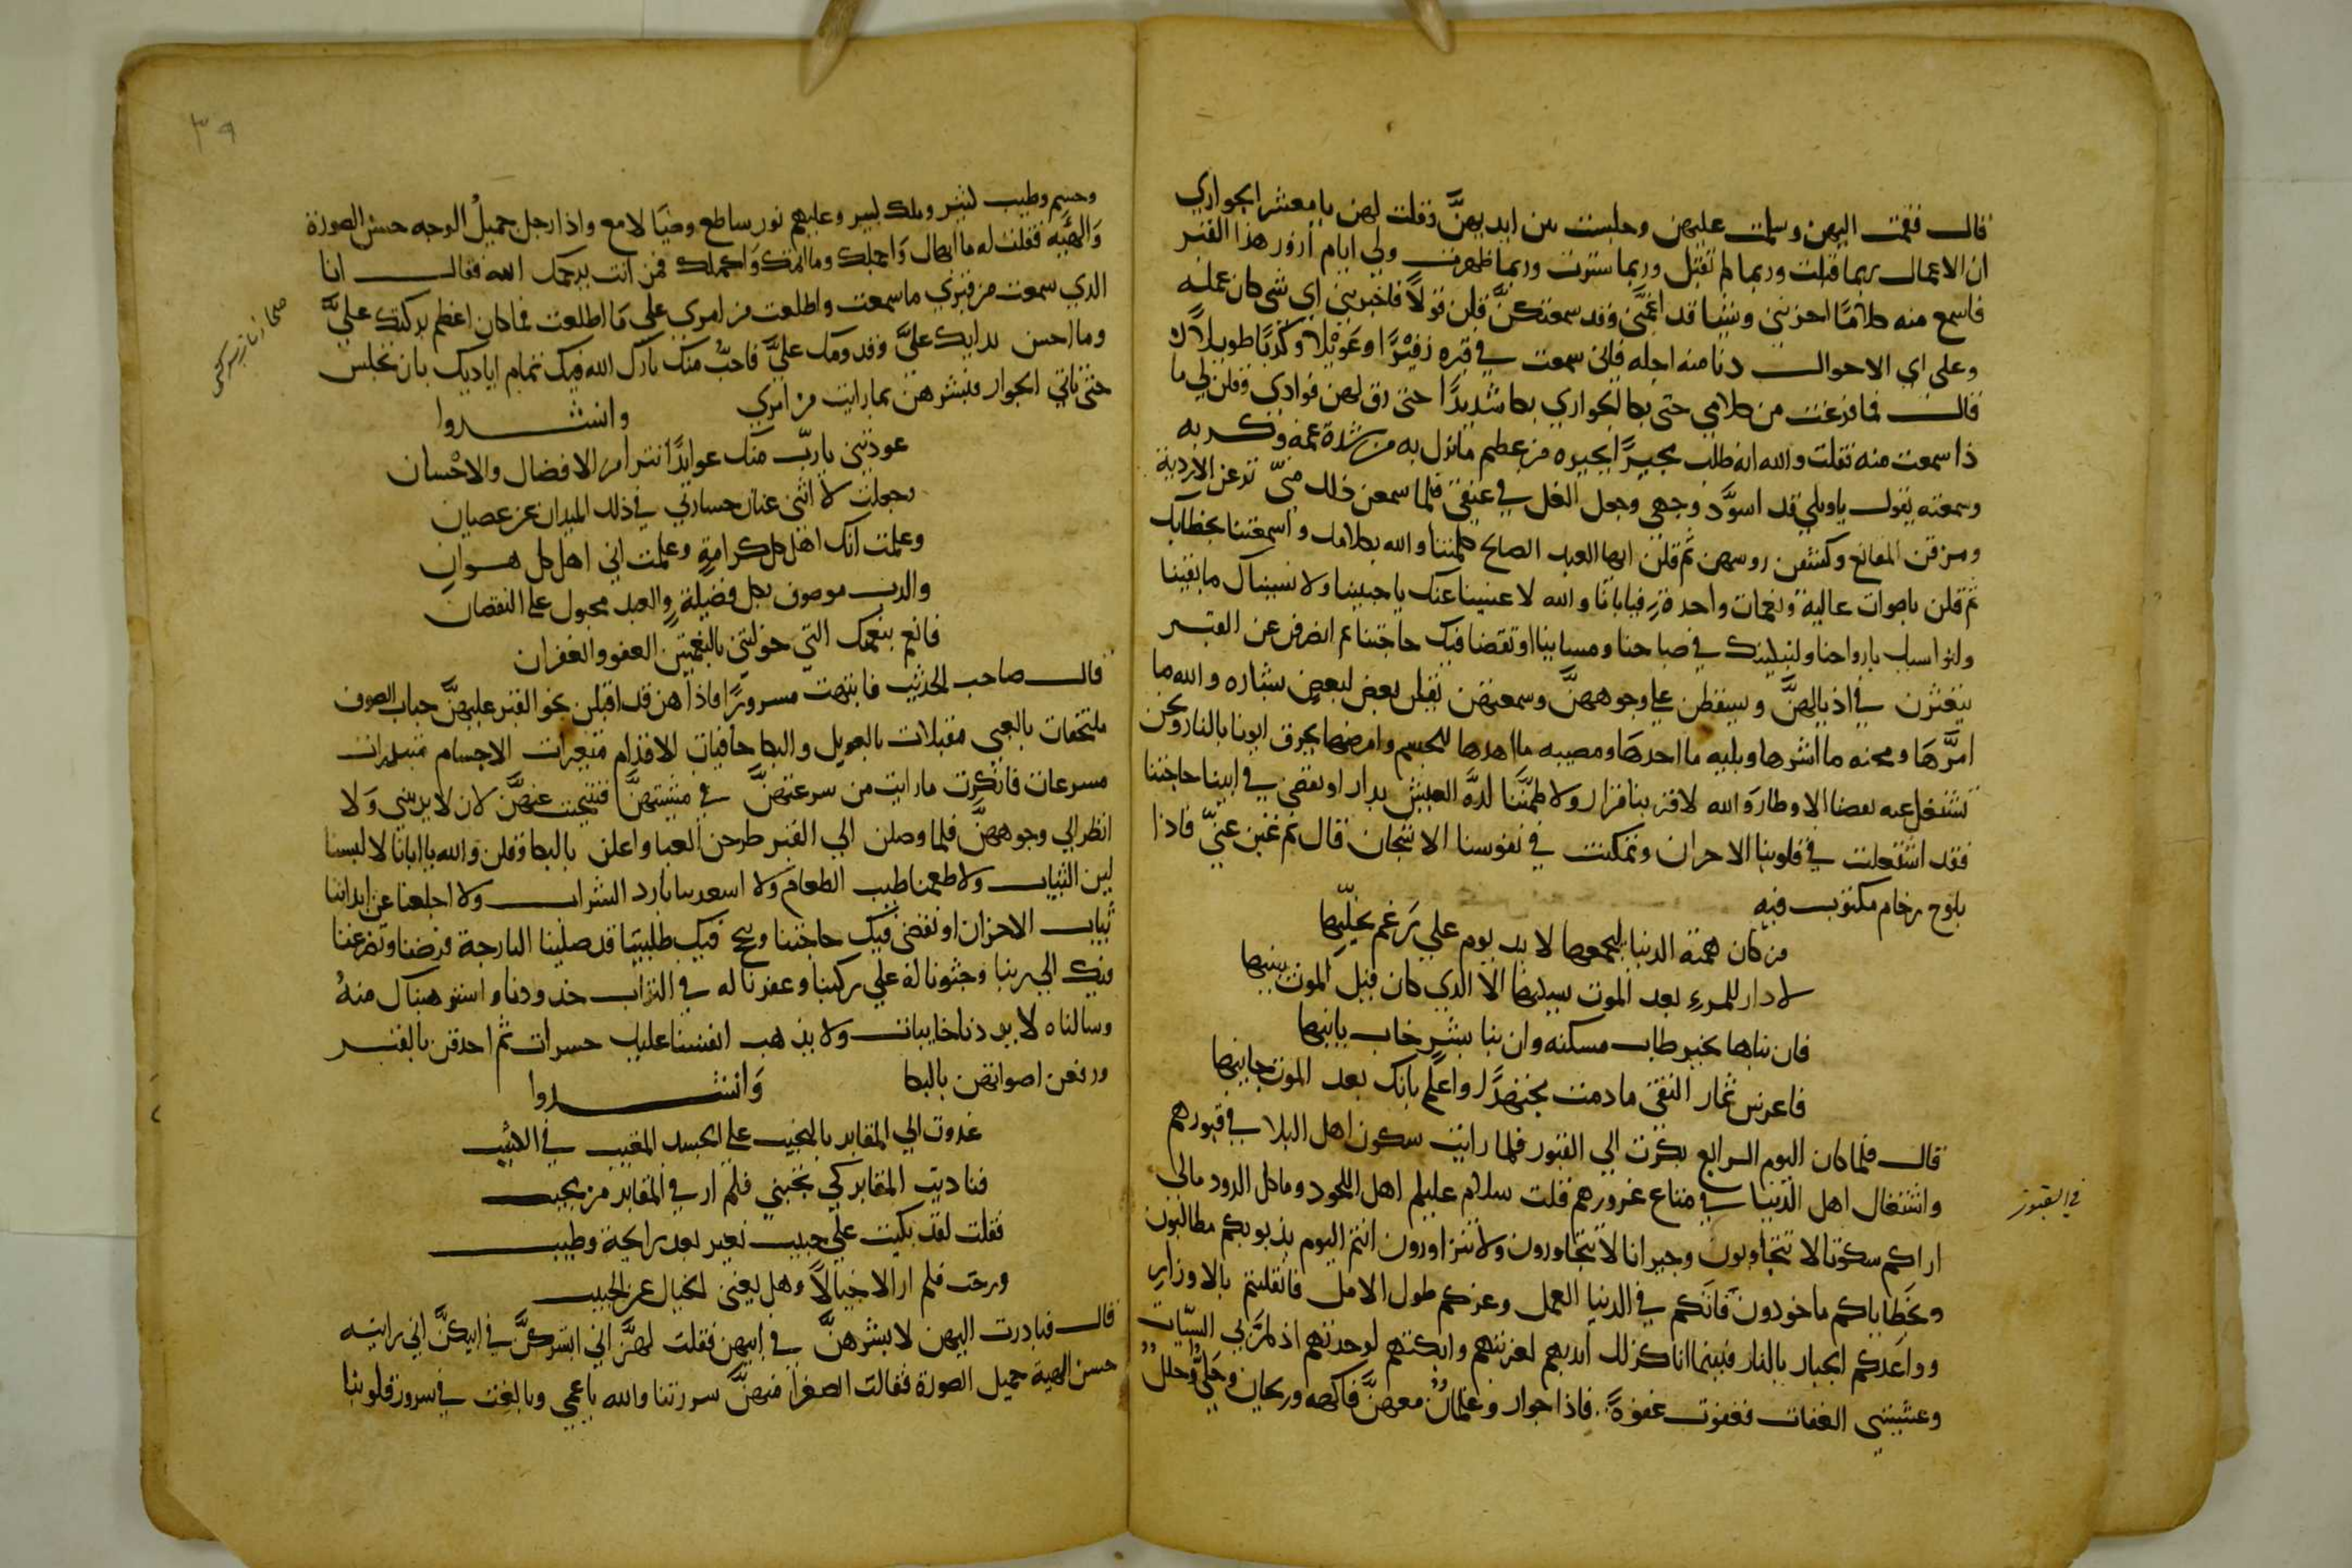 قال فقمت اليهن وسلمت عليهن وجلست بين ايديهنَّ وقلت لهن يا معشر الجواري
ان الاعمال ربما قبلت وربما لم تقبل وربما سترت وربما ظهرت ولي ايام ازور هذا القبر
فاسمع منه كلامًا احزنني وشيا قد اغمَّني وقد سمعتكنَّ قلن قولاً فاخبرنني اي شي كان عمله
وعلى اي الاحوال دنا منه اجله فاني سمعت في قبره زفيرًا وعَوِيْلا وكَرْبًا طويلاً
قال فما فرغت من كلامي حتى بكا الجواري بكا شديدًا حتى رق لهن فوادي وقلن لي ما
ذا سمعت منه فقلت والله انه طلب مجيرًا يجيره من عظم ما نزل به من شدة غمه وكربه
وسمعته يقول ياويلي قد اسوَّد وجهي وجعل الغل في عنقي فلما سمعن ذلك منّي نزعن الاردية
ومزقن المقانع وكشفن روسهن ثم قلن ايها العبد الصالح كلمتنا والله بكلامك واسمعتنا بخطابك
ثم قلن باصوات عالية ونغمات واحدة فيابانا والله لا عنينا عنك ياحبيبنا ولا نسيناك ما بقينا
ولنواسيك بارواحنا ولنبكينك في صباحنا ومساينا او تقضا فيك حاجتنا ثم انصرفن عن القبر
يتعثرن في اذيالهنَّ ويسقطن على وجوههنَّ وسمعتهن يقلن بعض لبعض بشاره والله ما
امرَّها ومحنه ما اشرها وبليه ما احدها ومصيبه ما اهدها للجسم وامرضها يحرق ابونا بالنار ونحن
نشتغل عنه بقضا الاوطار وَالله لا قر بنا قرار ولا طمّتنا لذَّة العيش بدار او تقضى في ابينا حاجتنا
فقد اشتعلت في قلوبنا الاحزان وتمكنت في نفوسنا الاشجان قال ثم غبن عنيّ فاذا
بلوح رخام مكتوب فيه
من كان همته الدنيا ليجمعها لا بد يوم علي رَغم يخلّيها
لا دار للمرءِ بعد الموت يسكنها الا الذي كان قبل الموت يبنيها
فان بناها بخير طاب مسكنه وان بنا بشرٍ خاب بانيها
فاغرس ثمار التقى مادمت مجتهدًا واعلم بانك بعد الموت جانيها
قال فلما كان اليوم الرابع بكرت الي القبور فلما رايت سكون اهل البلا في قبورهم
واشتغال اهل الدنيا في متاع غرورهم قلت سلام عليكم اهل اللحود وماكل الدود مالى
في القبور
اراكم سكوتا لا تتجاوبون وجيرانا لا تتجاورون ولا تتزاورون انتم اليوم بذنوبكم مطالبون
وبخَطاياكم ماخوذون فَاتَكم في الدنيا العمل وغركم طول الامل فانقلبتم بالاوزار
وواعَدكم الجبار بالنار فبينما انا كذلك اندبهم لغربتهم وابكتهم لوحدتهم اذ لمرَّ بي السيّات
وعشيتني الغفات فغفوت غفوةً فاذا جوار وغلمان معهنَّ فاكهه وريحان وحَلَيٌ وحللٌ
٣٩
وحسم وطيب نشر وملك لبير وعليهم نور ساطع وضيًا لامع واذا رجل جميلُ الوجه حسَنُ الصورة
وَالهيئة فقلت له ما ابهاك وَاجملك وما اتمك وَاكملك فمن انت يرحمك الله فقال انا
الذي سمعت من قبري ما سمعت واطلعت من امري على مَا اطلعت فما كان اعظم بركتك عليَّ
وما احسن يدايك عليَّ وقدومك عليَّ فاحبُّ منك بارك الله فيك تمام اياديك بان تجلس
حتى تاتي الجوار فتبشرهن بما رايت من امري وانشدوا
عودتني ياربّ منك عوايدًا تترا من الافضال والاحْسان
وجعلت لا اثنى عنان جسارتي في ذلك الميدان عن عصيان
وعلمت انك اهل كل كرامةٍ وعلمت اني اهل كل هوان
والرب موصوف بكل فضيلةٍ والعبد مجبول على النقصان
فانعم بنعمك التي خولتني بالبغيتين العفو والغفران
قال صاحب الحديث فانتبهت مسرورًا فاذا هن قد اقبلن نحو القبر عليهنَّ جباب الصوف
ملتحفات بالعبى مقبلات بالعويل والبكا حافيات الاقدام متغيرات الاجسام متبدرات
مسرعات فانكرت ما رايت من سرعتهنَّ في مشيتهنَّ فتنحيت عنهنَّ لان لا يريني وَلا
انظر الي وجوههنَّ فلما وصلن الي القبر طرحن العبا واعلن بالبكا وقلن والله يا ابانا لا لبسنا
لين الثياب ولا طعمنا طيب الطعام وَلا استعدبنا بارد الشراب ولا اخلعنا عن ابداننا
ثياب الاحزان او تقضى فيك حاجتنا وينجح فيك طلبتنا قد صلينا البارحة فرضنا وتضرعنا
فيك الى ربنا وجثونا له على ركبنا وعفرنا له في التراب خدودنا واستوهبناك منهُ
وسالناه لا يردنا خايبات ولا يذهب انفسنا عليك حسرات ثم احدقن بالقبر
ورفعن اصواتهن بالبكا وَانشدوا
غدوت الي المقابر بالنحيب على الجسد المغيب في الكثيب
فناديت المقابر كي تجبني فلم ار في المقابر من يجيب
فقلت لقد بكيت علي حبيب تغير بعد رايحة وطيب
ورحت فلم ار الا خيالاً وهل يغنى الخيال عن الحبيب
قال فبادرت اليهن لابشرهنَّ في ابيهن فقلت لهنَّ اني ابشركنَّ في ابيكنَّ اني رايته
حسن الهية جميل الصورة فقالت الصغرا منهنَّ سررتنا والله ياعمي وبالغت في سرور قلوبنا